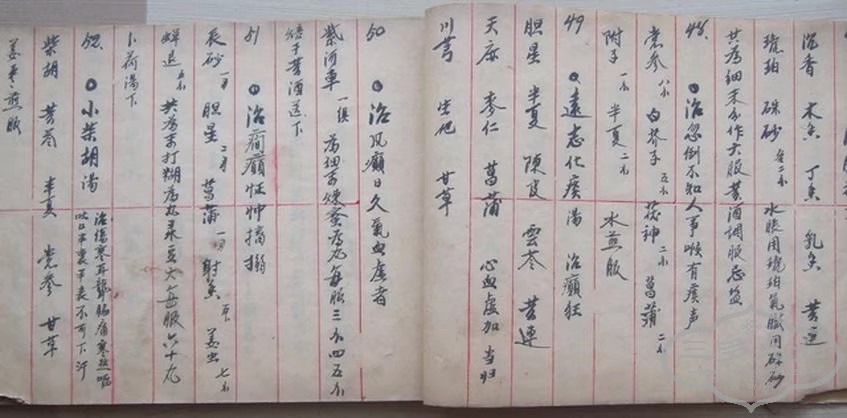 沉香 木香 丁香 乳香 黄连
琥珀 硃砂 各二小 水胀用琥珀气膨用硃砂
共为细末分作六服黄酒调服忌盐
48 治忽倒不知人事喉有痰声
党参 八小 白芥子 五小 茯神 二小 菖蒲 二小
附子 一小 半夏 二小 水煎服
49 遠志化痰湯 治癫狂
胆星 半夏 陳皮 雲苓 黄連
天麻 枣仁 菖蒲 心血虚加当归
川芎 生地 甘草
50 治风癫日久氣血虚者
紫河車 一俱 为细末炼蜜为丸每服三小四五小
焙干黄酒送下
51 治癎癲怔忡搐搦
辰砂 胆星 二 菖蒲 一 射香 姜虫 七小
蝉退 五小 共为末打糊为丸菉豆大每服六十丸
卜荷湯下
52 小柴胡湯 治傷寒耳聋胁痛寒热呕
吐口苦半裏半表不可下汗
柴胡 黄芩 半夏 党参 甘草
姜枣煎服